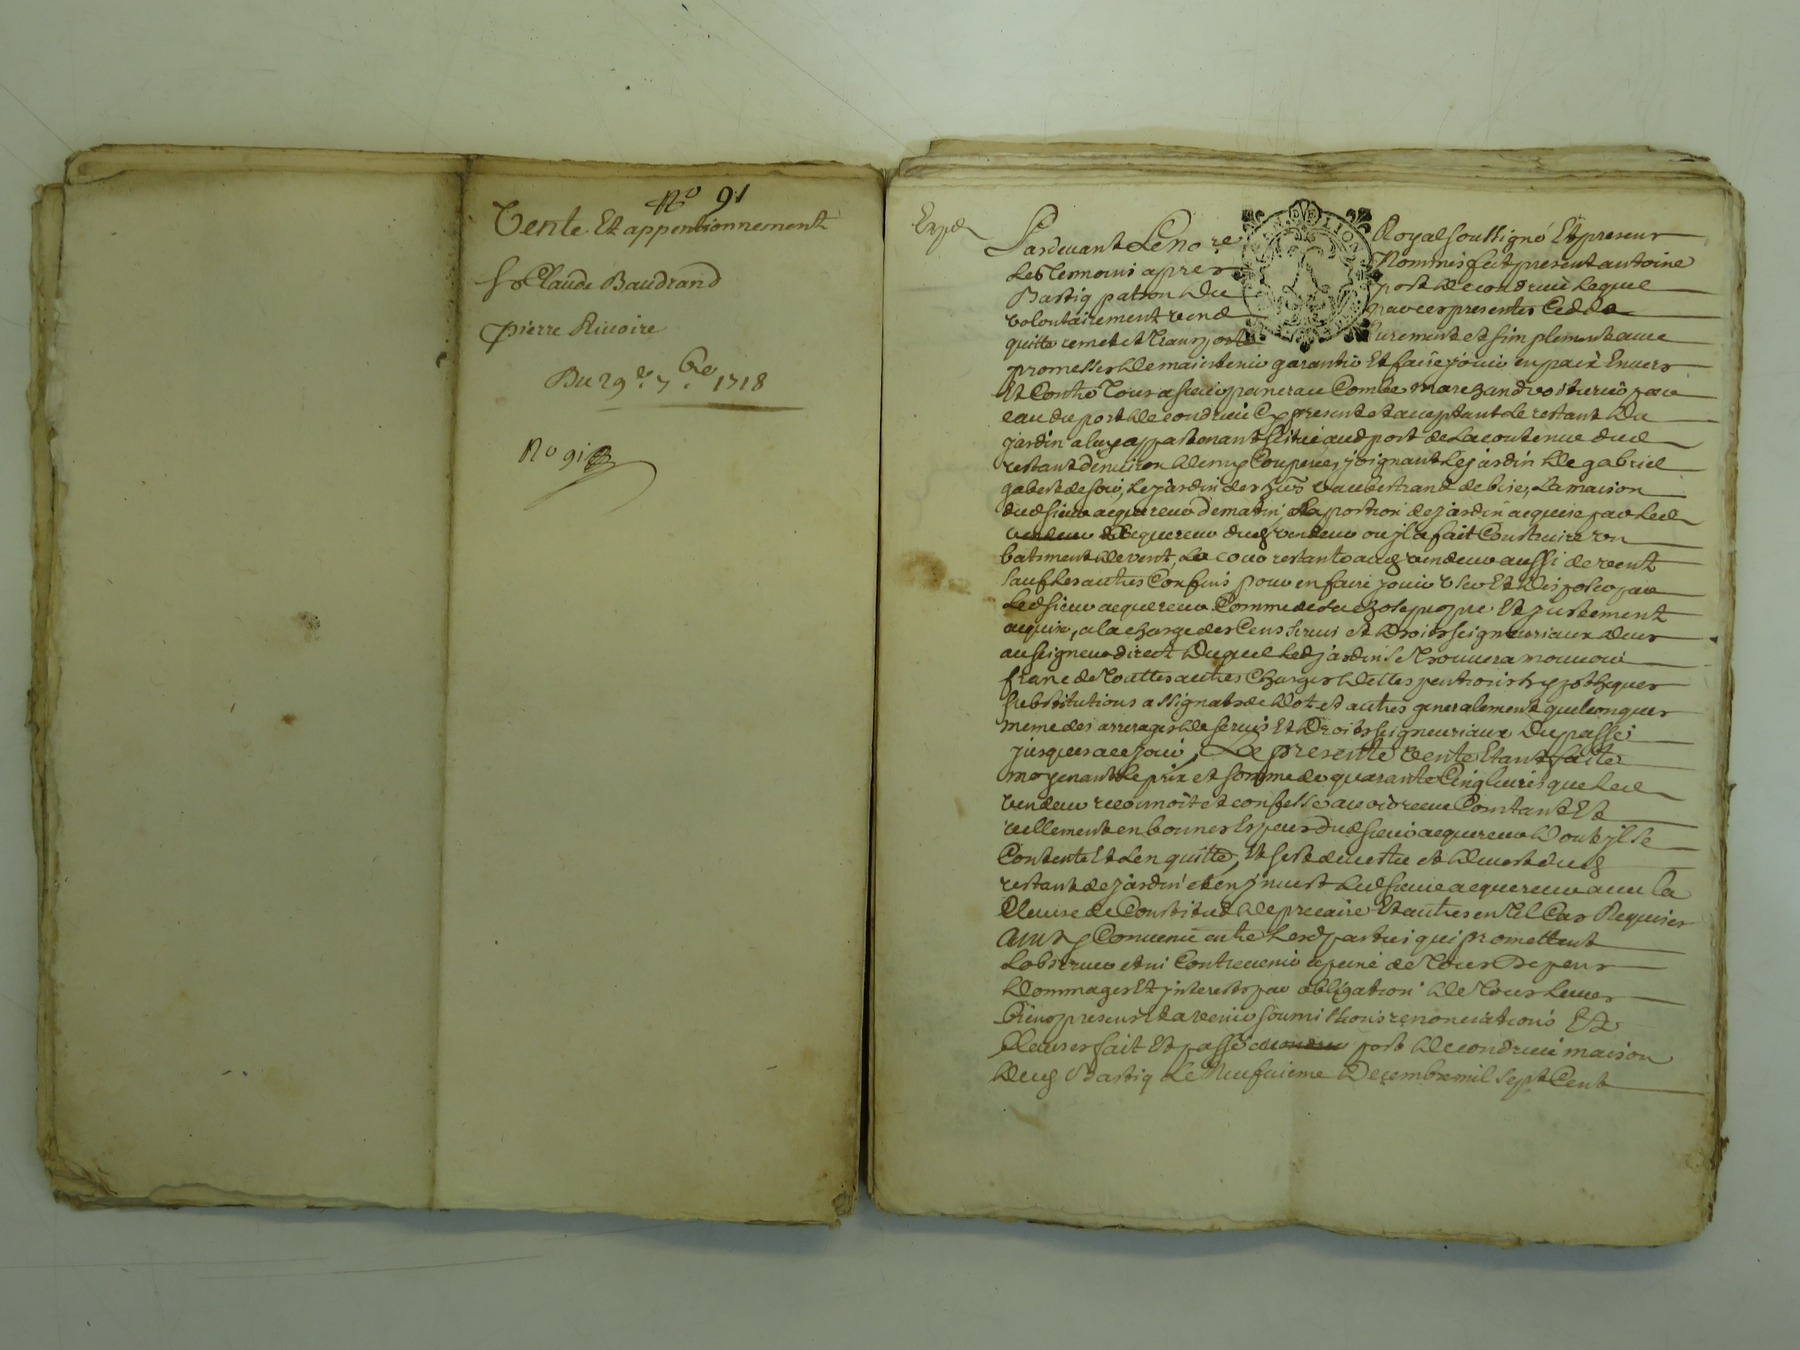 No 91
Vente Et appentionnement
Sr Claude Baudrand
pierre Riuoire
Du 29e 7bre 1718
No 91
Expd
Pardeuant Le no re Royal soussigné Et presens
Les Temoins apres Nommés fut present antoine
Bastiq patron Du port de condrieu Lequel
volontairement vend par ces presentes Cedde
quitte remet et Transporte purement et simplement auec
promesse de maintenir garantir Et faire jouir en paix Enuers
Et Contre Tous a sieur Combe marchand voiturier par
eau du port de condrieu Cy present et acceptant Le restant Du
jardin a luy appartenant scitué aud port de La contenue dud
restant d'enuiron demy Couperée, joignant Le jardin de gabriel
de soir, Le jardin des de bise, La maison
dud sieur acquereur de matin, La portion de jardin acquise par Led
acquereur dud vendeur ou jl a fait Construire un
batiment de vent, La cour restante aud vendeur aussi de vent
sauf Les autres Confins pour en faire jouir User Et Disposer par
Led sieur acquereur Comme de sa chose propre Et justement
acquise, a la charge des Cens seruis et Droits seigneuriaux deus
au seigneur direct Duquel Led jardin se Trouuera mouuoir
franc de Touttes autres Charges Dettes pentions hypotheques
substitutions assignats de Dot et autres generalement quelconques
meme des arrerages de seruis Et Droits seigneuriaux Du passé
jusques a ce jour, La presente Vente Etant faite
moyenant Le prix et somme de quarante Cinq liures que Led
vendeur reconnoit et confesse auoir receu Comtant Et
reellement en bonnes Especes dud sieur acquereur Dont jl se
Contente Et L'en quitte, Et s'est deuestu et dud
restant de jardin et en jnuest Led sieur acquereur auec la
Clause de Constitut de precaire Et autres en Tel Cas Requises
Ainsy Conuenu entre Lesd parties qui promettent
L'obseruer et ni Contreuenir a peine de Tous Depens
Dommages Et jnterests par obligation de Tous Leurs
Biens presens Et a venir soumissions renonciations Et
Clauses fait Et passé port de condrieu maison
dud Bastiq Le Neufuieme Decembre mil sept Cent